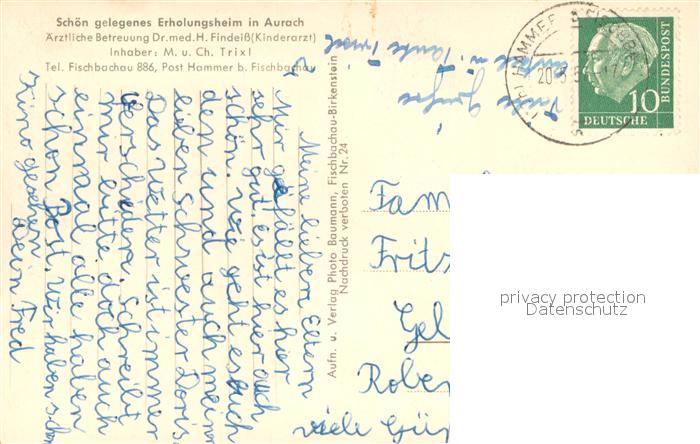 Schön gelegenes Erholungsheim in Aurach
Ärztliche Betreuung Dr. med. H. Findeiß (Kinderarzt)
Inhaber: M. u. Ch. Trixl
Tel. Fischbachau 886, Post Hammer b. Fischbachau
Meine lieben Eltern
Mir gefällt es hier
sehr gut. es ist hier auch
schön. wie geht es euch
den und auch meiner
lieben schwester Doris
Das Wetter ist immer
verschieden. Schreibt
mir bitte doch auch
einmal alle haben
schon Post. Wir haben schon
Kino gesehen
Dein Fred
Aufn. u. Verlag Photo Baumann, Fischbachau-Birkenstein
Nachdruck verboten Nr. 24
viele Grüße
Tante
HAMMER
20.
10
DEUTSCHE
BUNDESPOST
Fam
Fritz
Gel
Rober
viele Grüß
privacy protection
Datenschutz